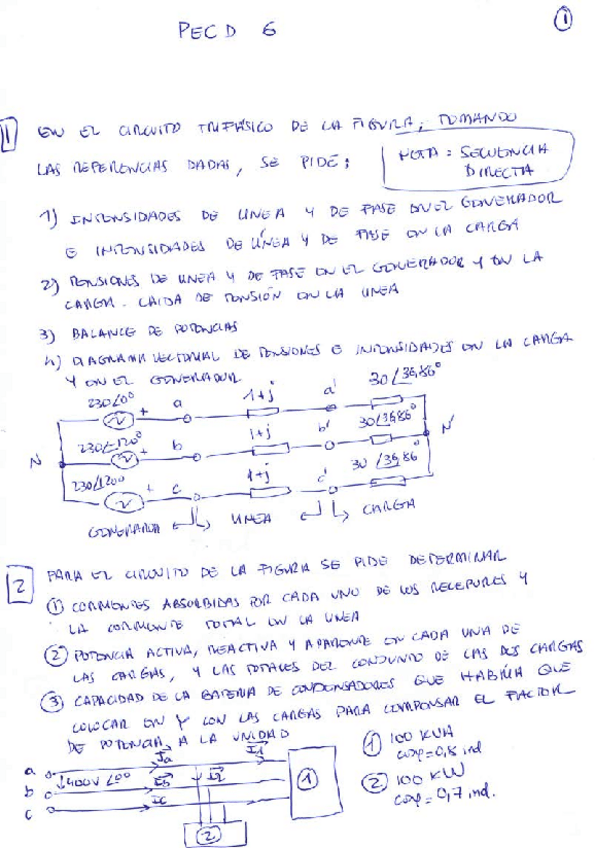 PECD 6
①
1 EN EL CIRCUITO TRIFÁSICO DE LA FIGURA, TOMANDO
LAS REFERENCIAS DADAS, SE PIDE:
NOTA: SECUENCIA
DIRECTA
1) INTENSIDADES DE LINEA Y DE FASE EN EL GENERADOR
E INTENSIDADES DE LÍNEA Y DE FASE EN LA CARGA
2) TENSIONES DE LINEA Y DE FASE EN EL GENERADOR Y EN LA
CARGA. CAIDA DE TENSIÓN EN LA LINEA
3) BALANCE DE POTENCIAS
4) DIAGRAMA VECTORIAL DE TENSIONES E INTENSIDADES EN LA CARGA
Y EN EL GENERADOR
230∠0° + a 1+j a' 30/36,86°
230/-120° + b 1+j b' 30/36,86°
N N'
230/120° + c 1+j c' 30/36,86°
GENERADOR LINEA CARGA
2 PARA EL CIRCUITO DE LA FIGURA SE PIDE DETERMINAR
① CORRIENTES ABSORBIDAS POR CADA UNO DE LOS RECEPTORES Y
LA CORRIENTE TOTAL EN LA LINEA
② POTENCIA ACTIVA, REACTIVA Y APARENTE EN CADA UNA DE
LAS CARGAS, Y LAS TOTALES DEL CONJUNTO DE LAS DOS CARGAS
③ CAPACIDAD DE LA BATERIA DE CONDENSADORES QUE HABRIA QUE
COLOCAR EN Y CON LAS CARGAS PARA COMPENSAR EL FACTOR
DE POTENCIA A LA UNIDAD
a Ia I1
↓400V ∠0° I2
b Ib
c Ic
①
②
① 100 KVA
cosφ=0,8 ind
② 100 KW
cosφ=0,7 ind.